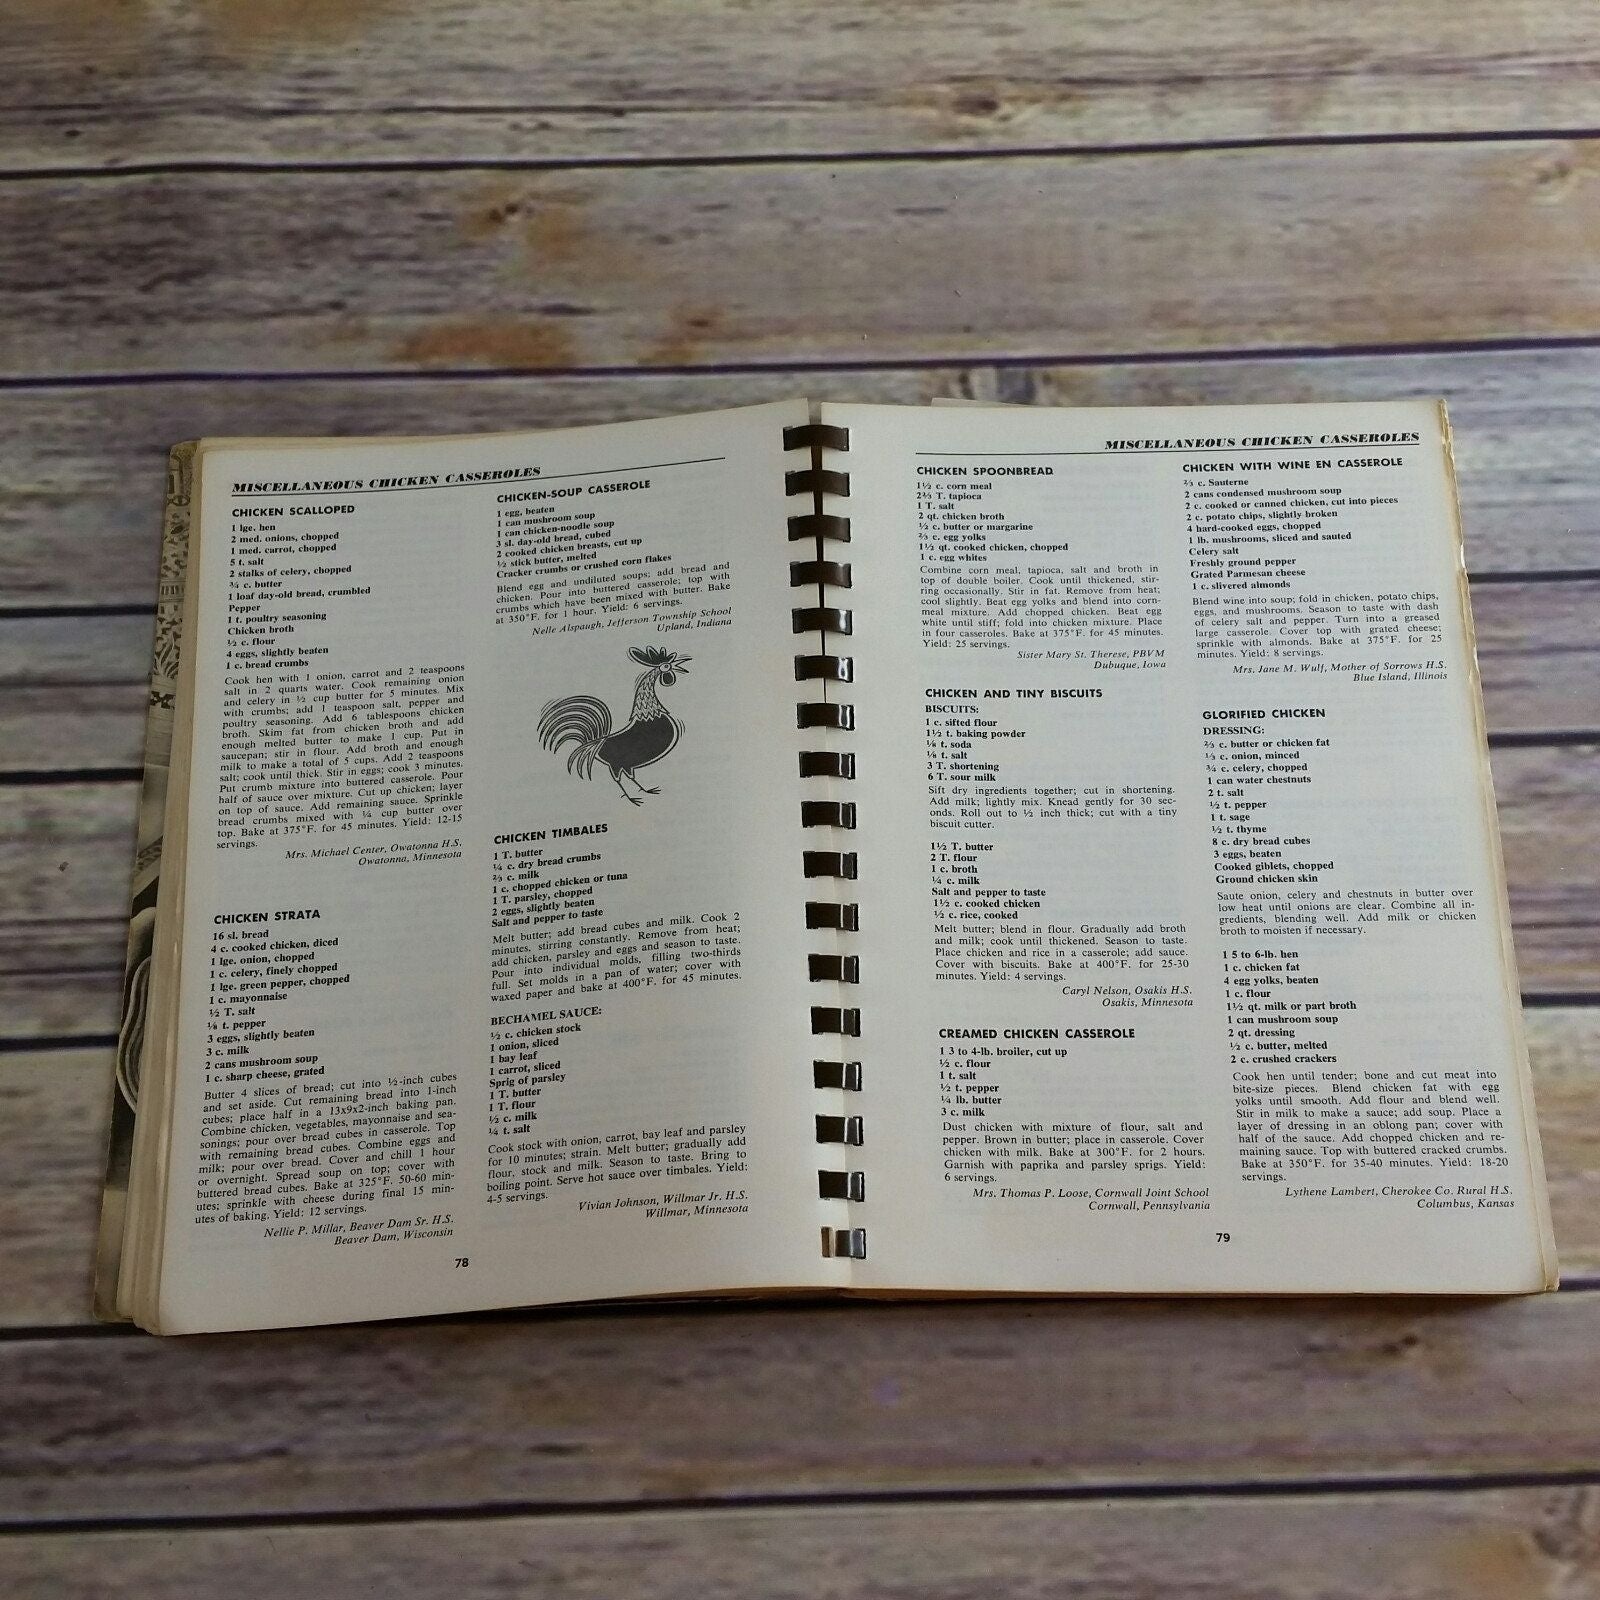 MISCELLANEOUS CHICKEN CASSEROLES
CHICKEN SCALLOPED
1 lge. hen
2 med. onions, chopped
1 med. carrot, chopped
5 t. salt
2 stalks of celery, chopped
¾ c. butter
1 loaf day-old bread, crumbled
Pepper
1 t. poultry seasoning
Chicken broth
½ c. flour
4 eggs, slightly beaten
1 c. bread crumbs
Cook hen with 1 onion, carrot and 2 teaspoons
salt in 2 quarts water. Cook remaining onion
and celery in ½ cup butter for 5 minutes. Mix
with crumbs; add 1 teaspoon salt, pepper and
poultry seasoning. Add 6 tablespoons chicken
broth. Skim fat from chicken broth and add
enough melted butter to make 1 cup. Put in
saucepan; stir in flour. Add broth and enough
milk to make a total of 5 cups. Add 2 teaspoons
salt; cook until thick. Stir in eggs; cook 3 minutes.
Put crumb mixture into buttered casserole. Pour
half of sauce over mixture. Cut up chicken; layer
on top of sauce. Add remaining sauce. Sprinkle
bread crumbs mixed with ¼ cup butter over
top. Bake at 375°F. for 45 minutes. Yield: 12-15
servings.
Mrs. Michael Center, Owatonna H.S.
Owatonna, Minnesota
CHICKEN STRATA
16 sl. bread
4 c. cooked chicken, diced
1 lge. onion, chopped
1 c. celery, finely chopped
1 lge. green pepper, chopped
1 c. mayonnaise
½ T. salt
⅛ t. pepper
3 eggs, slightly beaten
3 c. milk
2 cans mushroom soup
1 c. sharp cheese, grated
Butter 4 slices of bread; cut into ½-inch cubes
and set aside. Cut remaining bread into 1-inch
cubes; place half in a 13x9x2-inch baking pan.
Combine chicken, vegetables, mayonnaise and sea-
sonings; pour over bread cubes in casserole. Top
with remaining bread cubes. Combine eggs and
milk; pour over bread. Cover and chill 1 hour
or overnight. Spread soup on top; cover with
buttered bread cubes. Bake at 325°F. 50-60 min-
utes; sprinkle with cheese during final 15 min-
utes of baking. Yield: 12 servings.
Nellie P. Millar, Beaver Dam Sr. H.S.
Beaver Dam, Wisconsin
CHICKEN-SOUP CASSEROLE
1 egg, beaten
1 can mushroom soup
1 can chicken-noodle soup
3 sl. day-old bread, cubed
2 cooked chicken breasts, cut up
½ stick butter, melted
Cracker crumbs or crushed corn flakes
Blend egg and undiluted soups; add bread and
chicken. Pour into buttered casserole; top with
crumbs which have been mixed with butter. Bake
at 350°F. for 1 hour. Yield: 6 servings.
Nelle Alspaugh, Jefferson Township School
Upland, Indiana
CHICKEN TIMBALES
1 T. butter
¼ c. dry bread crumbs
⅔ c. milk
1 c. chopped chicken or tuna
1 T. parsley, chopped
2 eggs, slightly beaten
Salt and pepper to taste
Melt butter; add bread cubes and milk. Cook 2
minutes, stirring constantly. Remove from heat;
add chicken, parsley and eggs and season to taste.
Pour into individual molds, filling two-thirds
full. Set molds in a pan of water; cover with
waxed paper and bake at 400°F. for 45 minutes.
BECHAMEL SAUCE:
½ c. chicken stock
1 onion, sliced
1 bay leaf
1 carrot, sliced
Sprig of parsley
1 T. butter
1 T. flour
½ c. milk
¼ t. salt
Cook stock with onion, carrot, bay leaf and parsley
for 10 minutes; strain. Melt butter; gradually add
flour, stock and milk. Season to taste. Bring to
boiling point. Serve hot sauce over timbales. Yield:
4-5 servings.
Vivian Johnson, Willmar Jr. H.S.
Willmar, Minnesota
78
MISCELLANEOUS CHICKEN CASSEROLES
CHICKEN SPOONBREAD
1½ c. corn meal
2⅔ T. tapioca
1 T. salt
2 qt. chicken broth
½ c. butter or margarine
⅔ c. egg yolks
1½ qt. cooked chicken, chopped
1 c. egg whites
Combine corn meal, tapioca, salt and broth in
top of double boiler. Cook until thickened, stir-
ring occasionally. Stir in fat. Remove from heat;
cool slightly. Beat egg yolks and blend into corn-
meal mixture. Add chopped chicken. Beat egg
white until stiff; fold into chicken mixture. Place
in four casseroles. Bake at 375°F. for 45 minutes.
Yield: 25 servings.
Sister Mary St. Therese, PBVM
Dubuque, Iowa
CHICKEN AND TINY BISCUITS
BISCUITS:
1 c. sifted flour
1½ t. baking powder
⅛ t. soda
⅛ t. salt
3 T. shortening
6 T. sour milk
Sift dry ingredients together; cut in shortening.
Add milk; lightly mix. Knead gently for 30 sec-
onds. Roll out to ½ inch thick; cut with a tiny
biscuit cutter.
1½ T. butter
2 T. flour
1 c. broth
¼ c. milk
Salt and pepper to taste
1½ c. cooked chicken
½ c. rice, cooked
Melt butter; blend in flour. Gradually add broth
and milk; cook until thickened. Season to taste.
Place chicken and rice in a casserole; add sauce.
Cover with biscuits. Bake at 400°F. for 25-30
minutes. Yield: 4 servings.
Caryl Nelson, Osakis H.S.
Osakis, Minnesota
CREAMED CHICKEN CASSEROLE
1 3 to 4-lb. broiler, cut up
½ c. flour
1 t. salt
½ t. pepper
¼ lb. butter
3 c. milk
Dust chicken with mixture of flour, salt and
pepper. Brown in butter; place in casserole. Cover
chicken with milk. Bake at 300°F. for 2 hours.
Garnish with paprika and parsley sprigs. Yield:
6 servings.
Mrs. Thomas P. Loose, Cornwall Joint School
Cornwall, Pennsylvania
CHICKEN WITH WINE EN CASSEROLE
⅔ c. Sauterne
2 cans condensed mushroom soup
2 c. cooked or canned chicken, cut into pieces
2 c. potato chips, slightly broken
4 hard-cooked eggs, chopped
1 lb. mushrooms, sliced and sauted
Celery salt
Freshly ground pepper
Grated Parmesan cheese
1 c. slivered almonds
Blend wine into soup; fold in chicken, potato chips,
eggs, and mushrooms. Season to taste with dash
of celery salt and pepper. Turn into a greased
large casserole. Cover top with grated cheese;
sprinkle with almonds. Bake at 375°F. for 25
minutes. Yield: 8 servings.
Mrs. Jane M. Wulf, Mother of Sorrows H.S.
Blue Island, Illinois
GLORIFIED CHICKEN
DRESSING:
⅔ c. butter or chicken fat
⅓ c. onion, minced
¾ c. celery, chopped
1 can water chestnuts
2 t. salt
½ t. pepper
1 t. sage
½ t. thyme
8 c. dry bread cubes
3 eggs, beaten
Cooked giblets, chopped
Ground chicken skin
Saute onion, celery and chestnuts in butter over
low heat until onions are clear. Combine all in-
gredients, blending well. Add milk or chicken
broth to moisten if necessary.
1 5 to 6-lb. hen
1 c. chicken fat
4 egg yolks, beaten
1 c. flour
1½ qt. milk or part broth
1 can mushroom soup
2 qt. dressing
½ c. butter, melted
2 c. crushed crackers
Cook hen until tender; bone and cut meat into
bite-size pieces. Blend chicken fat with egg
yolks until smooth. Add flour and blend well.
Stir in milk to make a sauce; add soup. Place a
layer of dressing in an oblong pan; cover with
half of the sauce. Add chopped chicken and re-
maining sauce. Top with buttered cracked crumbs.
Bake at 350°F. for 35-40 minutes. Yield: 18-20
servings.
Lythene Lambert, Cherokee Co. Rural H.S.
Columbus, Kansas
79